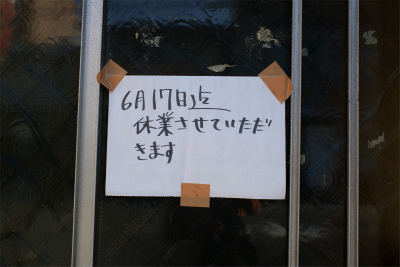 6月17日迄
休業させていただだ
きます